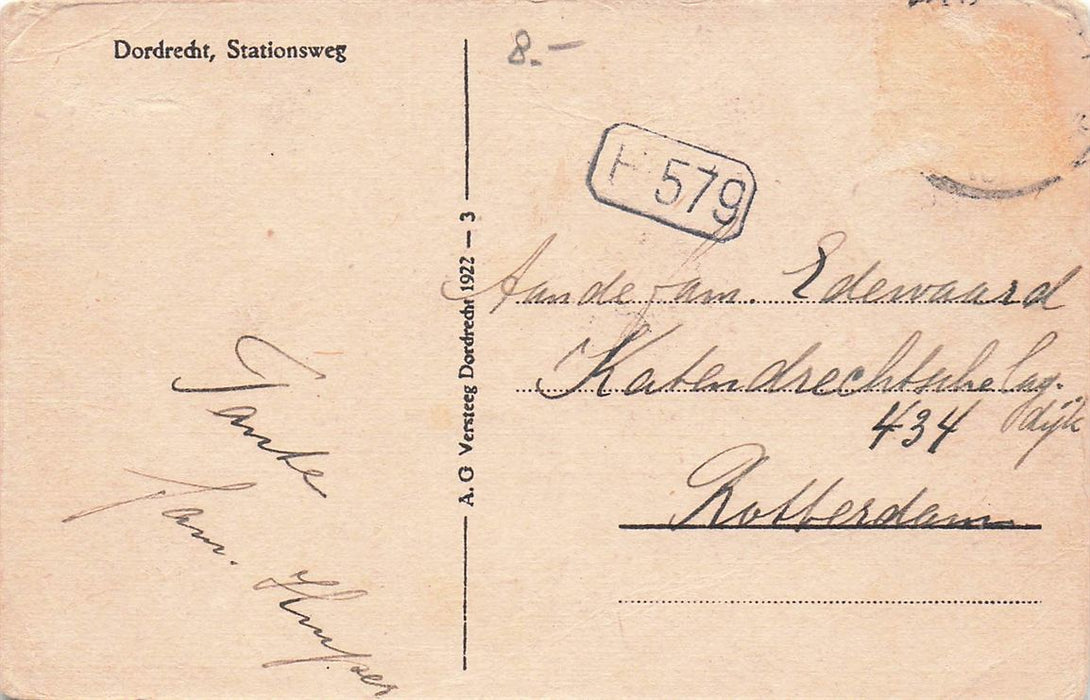 Dordrecht, Stationsweg
8.-
H 579
A. G Versteeg Dordrecht 1922 — 3
Aan de fam. Edewaard
Katendrechtsche Lag.
dijk
434
Rotterdam
Tante
Fam.